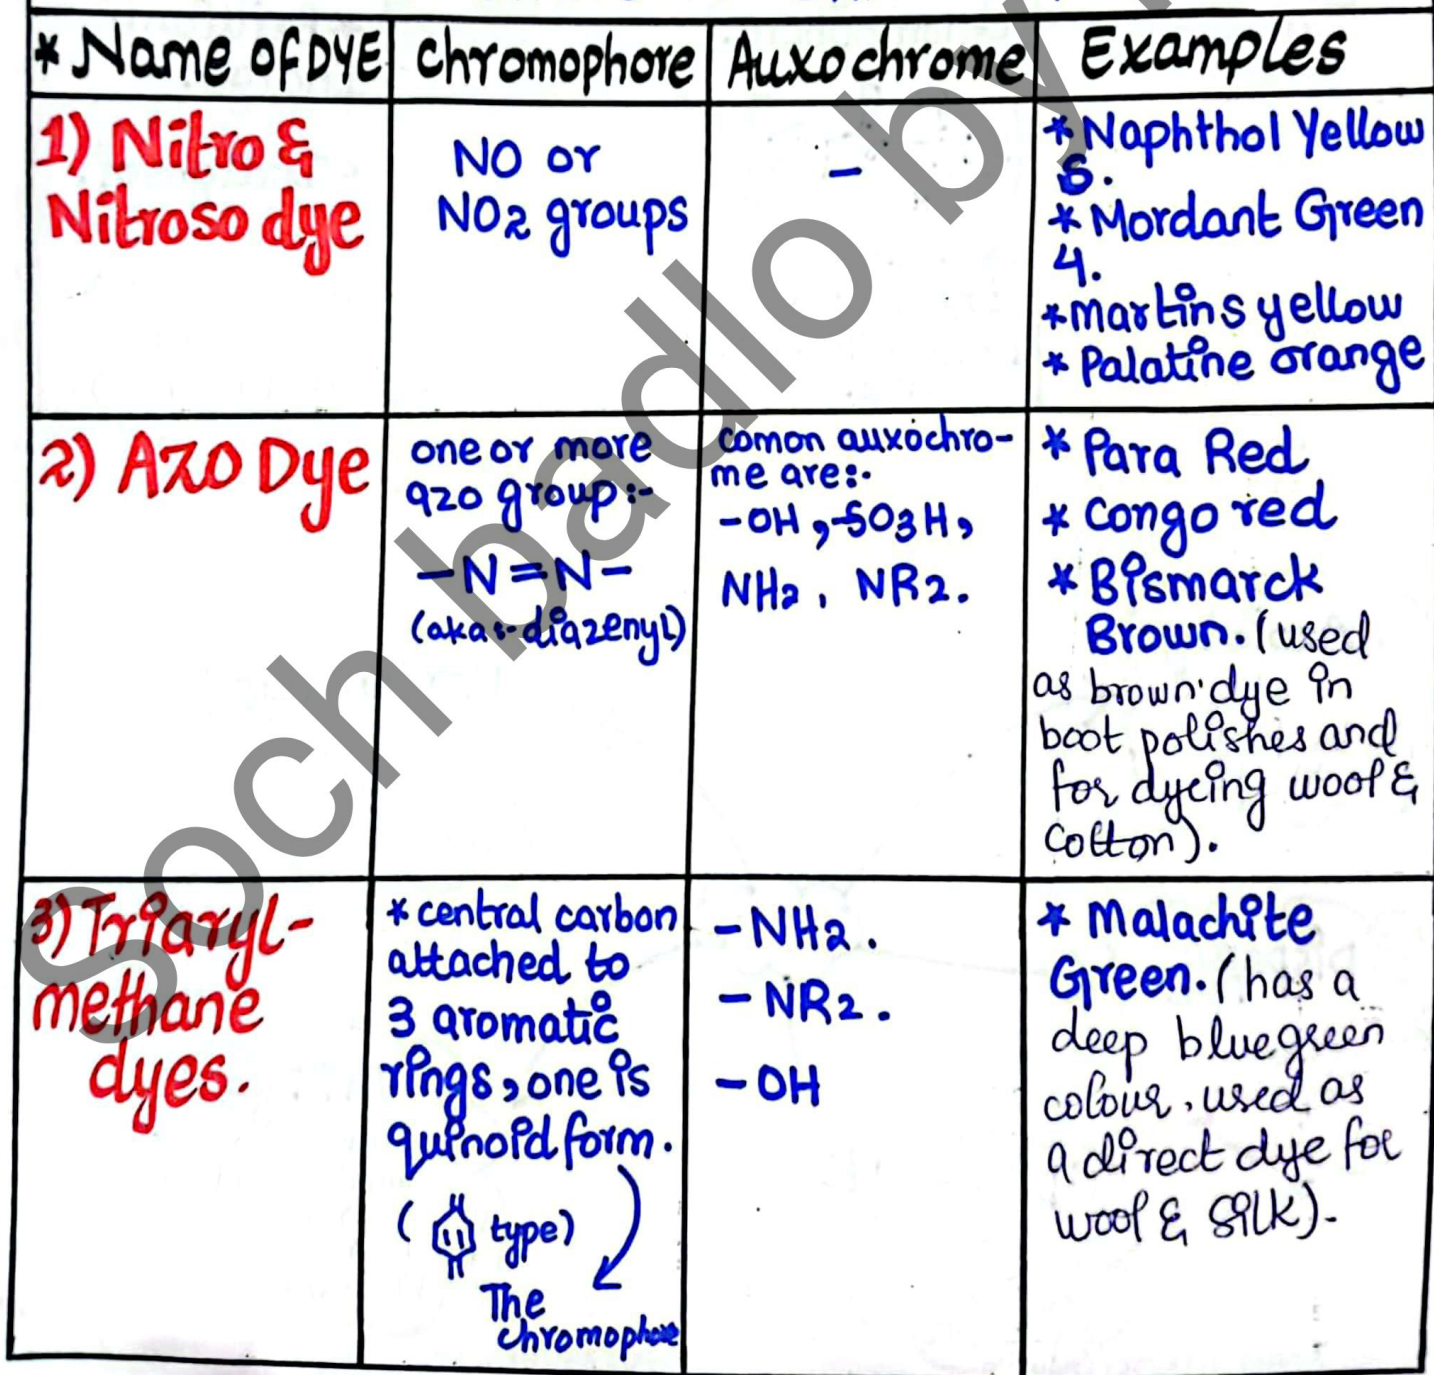 * Name of DYE
Chromophore
Auxochrome
Examples
1) Nitro &
Nitroso dye
NO or
NO2 groups
-
* Naphthol Yellow
S.
* Mordant Green
4.
* Martins yellow
* Palatine orange
2) Azo Dye
one or more
azo group:-
-N=N-
(aka:- diazenyl)
comon auxochro-
me are:-
-OH, -SO3H,
NH2, NR2.
* Para Red
* Congo red
* Bismarck
Brown. (used
as brown dye in
boot polishes and
for dyeing wool &
cotton).
3) Triaryl-
methane
dyes.
* central carbon
attached to
3 aromatic
rings, one is
quinoid form.
( type)
The
chromophore
- NH2.
- NR2.
- OH
* Malachite
Green. (has a
deep bluegreen
colour, used as
a direct dye for
wool & silk).
Soch badlo by